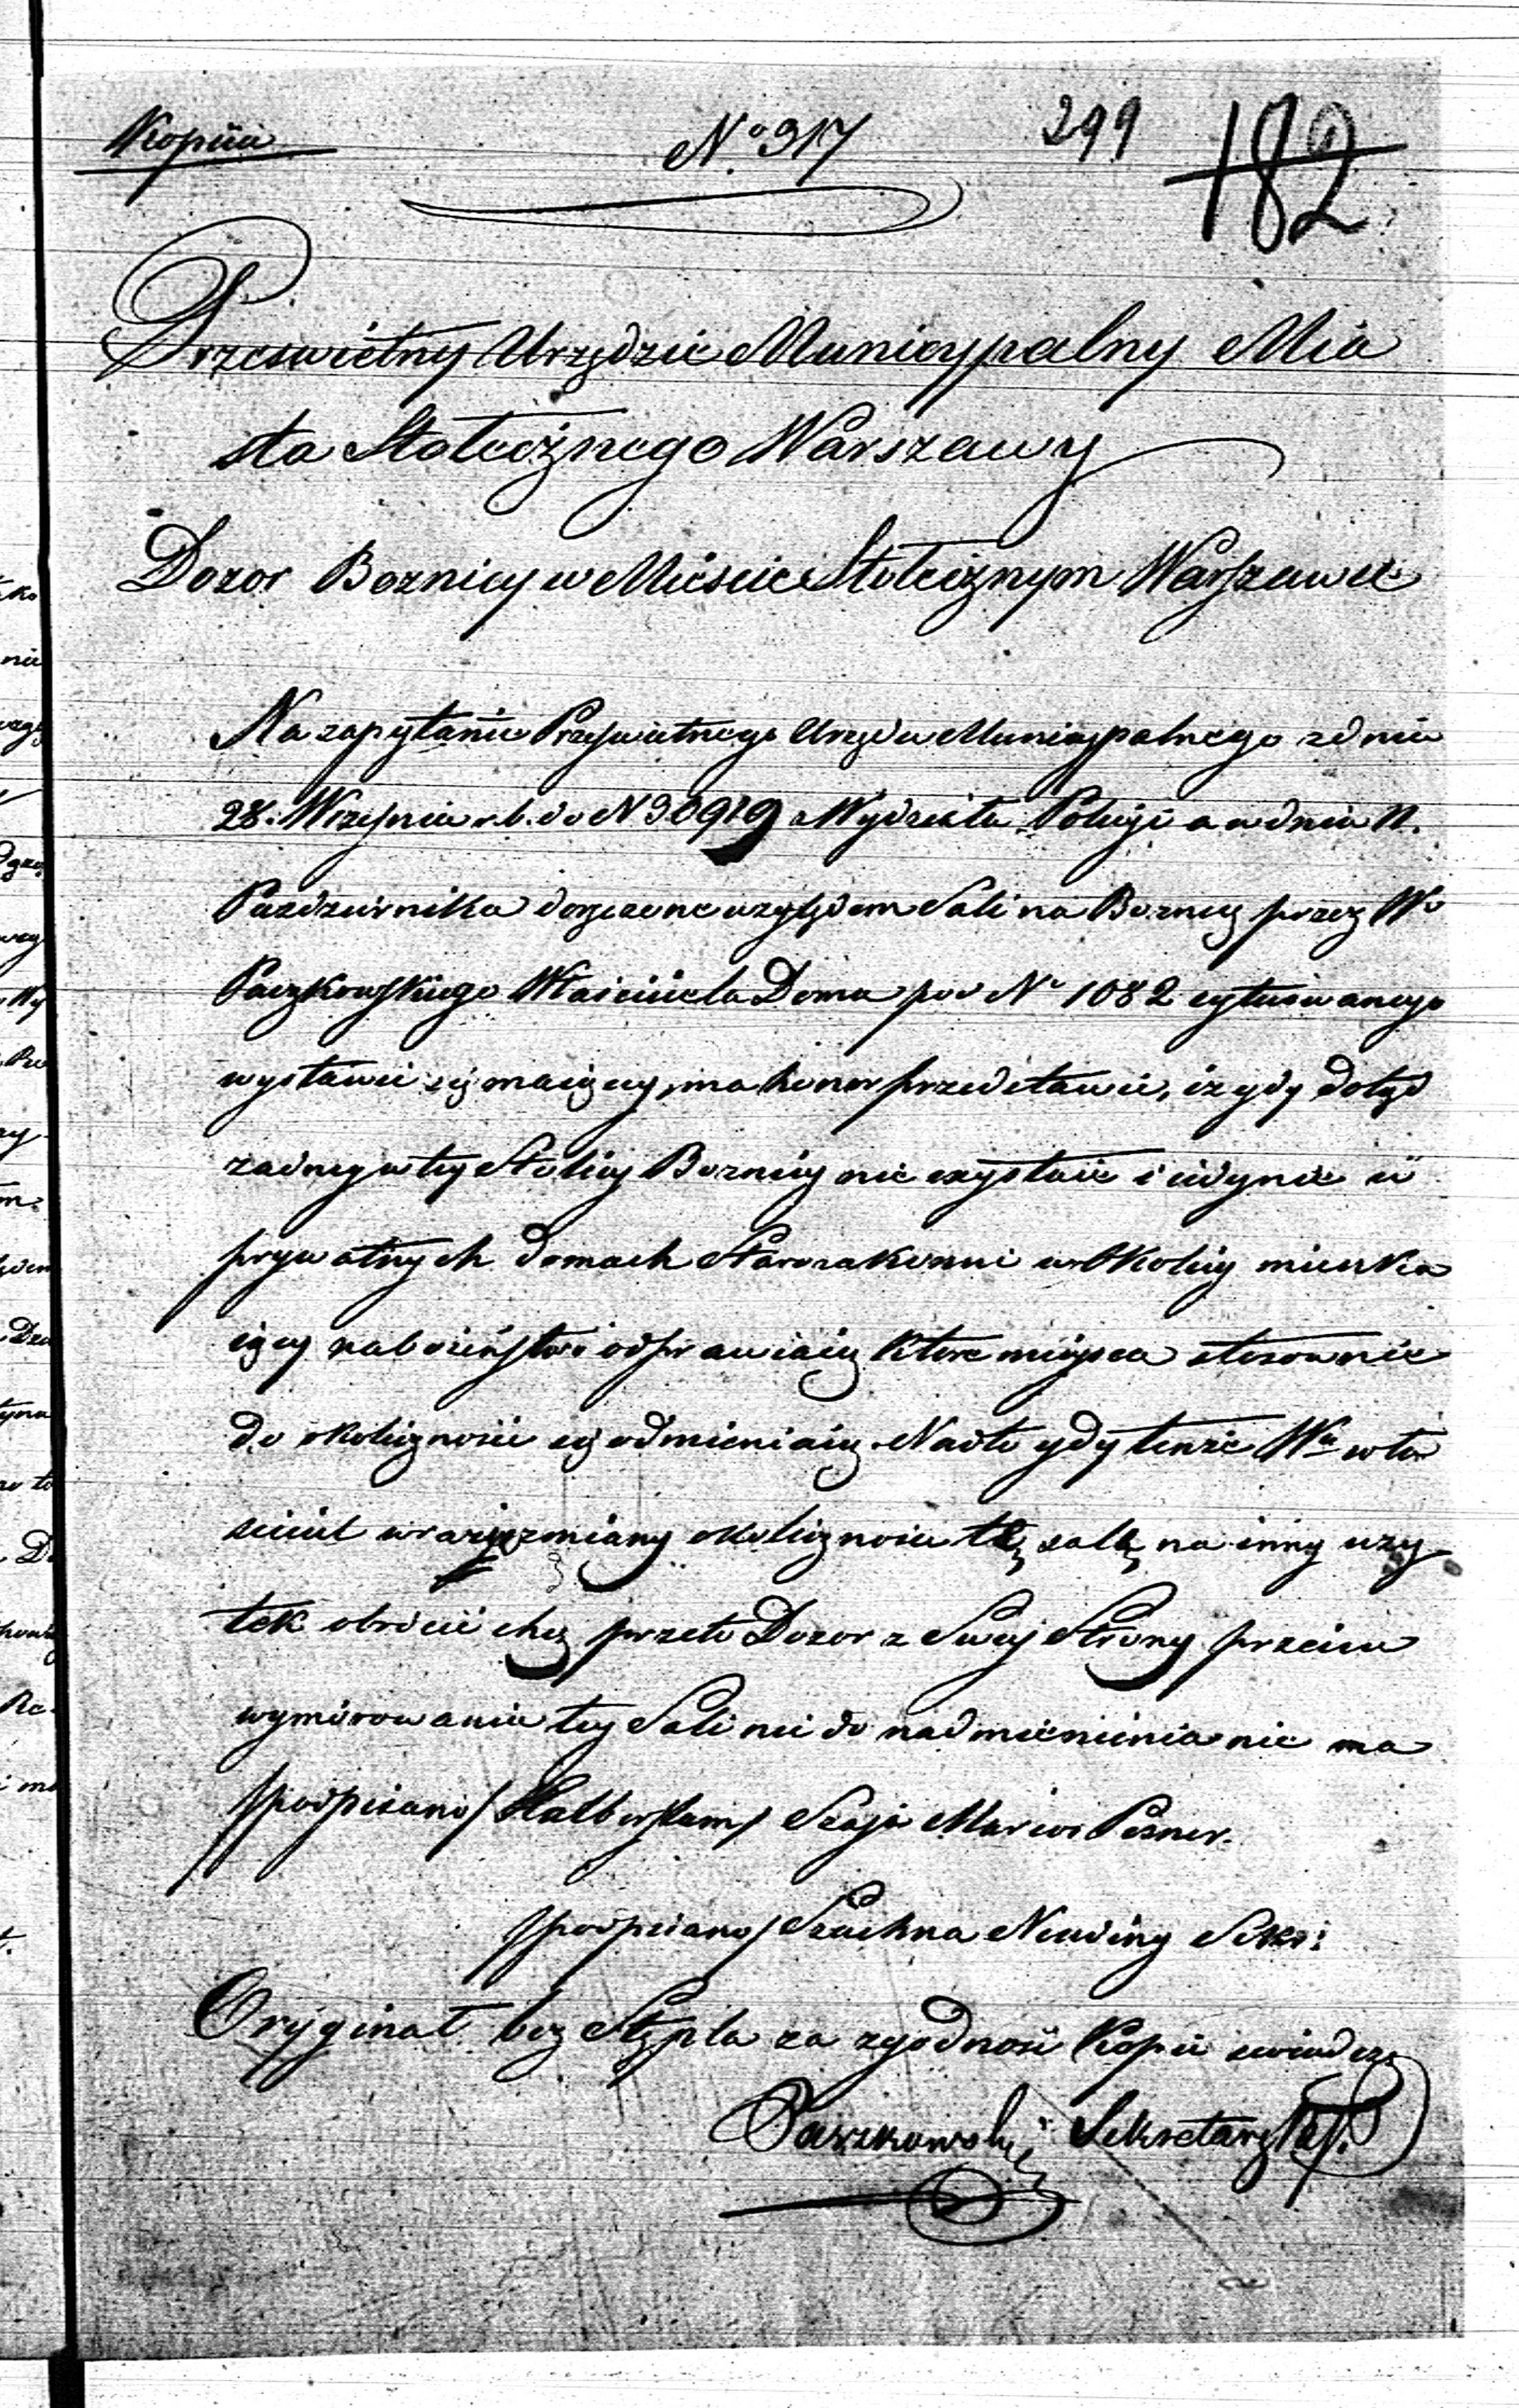 Kopiia
N.o 317
299
182
Prześwietny Urzędzie Municypalny Mia
sta Stołecznego Warszawy
Dozor Boznicy w Mieście Stołecznym Warszawie
Na zapytanie Prześwietnego Urzędu Municypalnego z dnia
28. Września r.b. do N 30919 z Wydziału Policyi a w dniu 11.
Pazdziernika doręczone względem Sali na Boznicę przez Wo
Paczkowskiego Właściciela Domu pod No 1082 cytuiowanego
wystawić się maiącey, ma honor przedstawić, iż gdy dotąd
zadney w tey Stolicy Boznicy nie exystuie i iedynie w
prywatnych domach Starozakonni w Okolicy mieszka
iący nabożeństwo odprawiaią które mieysca stosownie
do okoliczności się odmieniaią. Nadto gdy tenże Wu wła
ściciel w razie zmiany okoliczności tę salę na inny uzy
tek obrócić chce przeto Dozor z Swej Strony przeciw
wymurowaniu tey Sali nic do nadmienienia nie ma
/podpisano/ Halbersztam/ Szaja Marior Pozner.
/podpisano/ Szachna Neuding Sekr:
Oryginał bez Stępla za zgodność Kopii swiadczę
Paszkowski Sekretarz